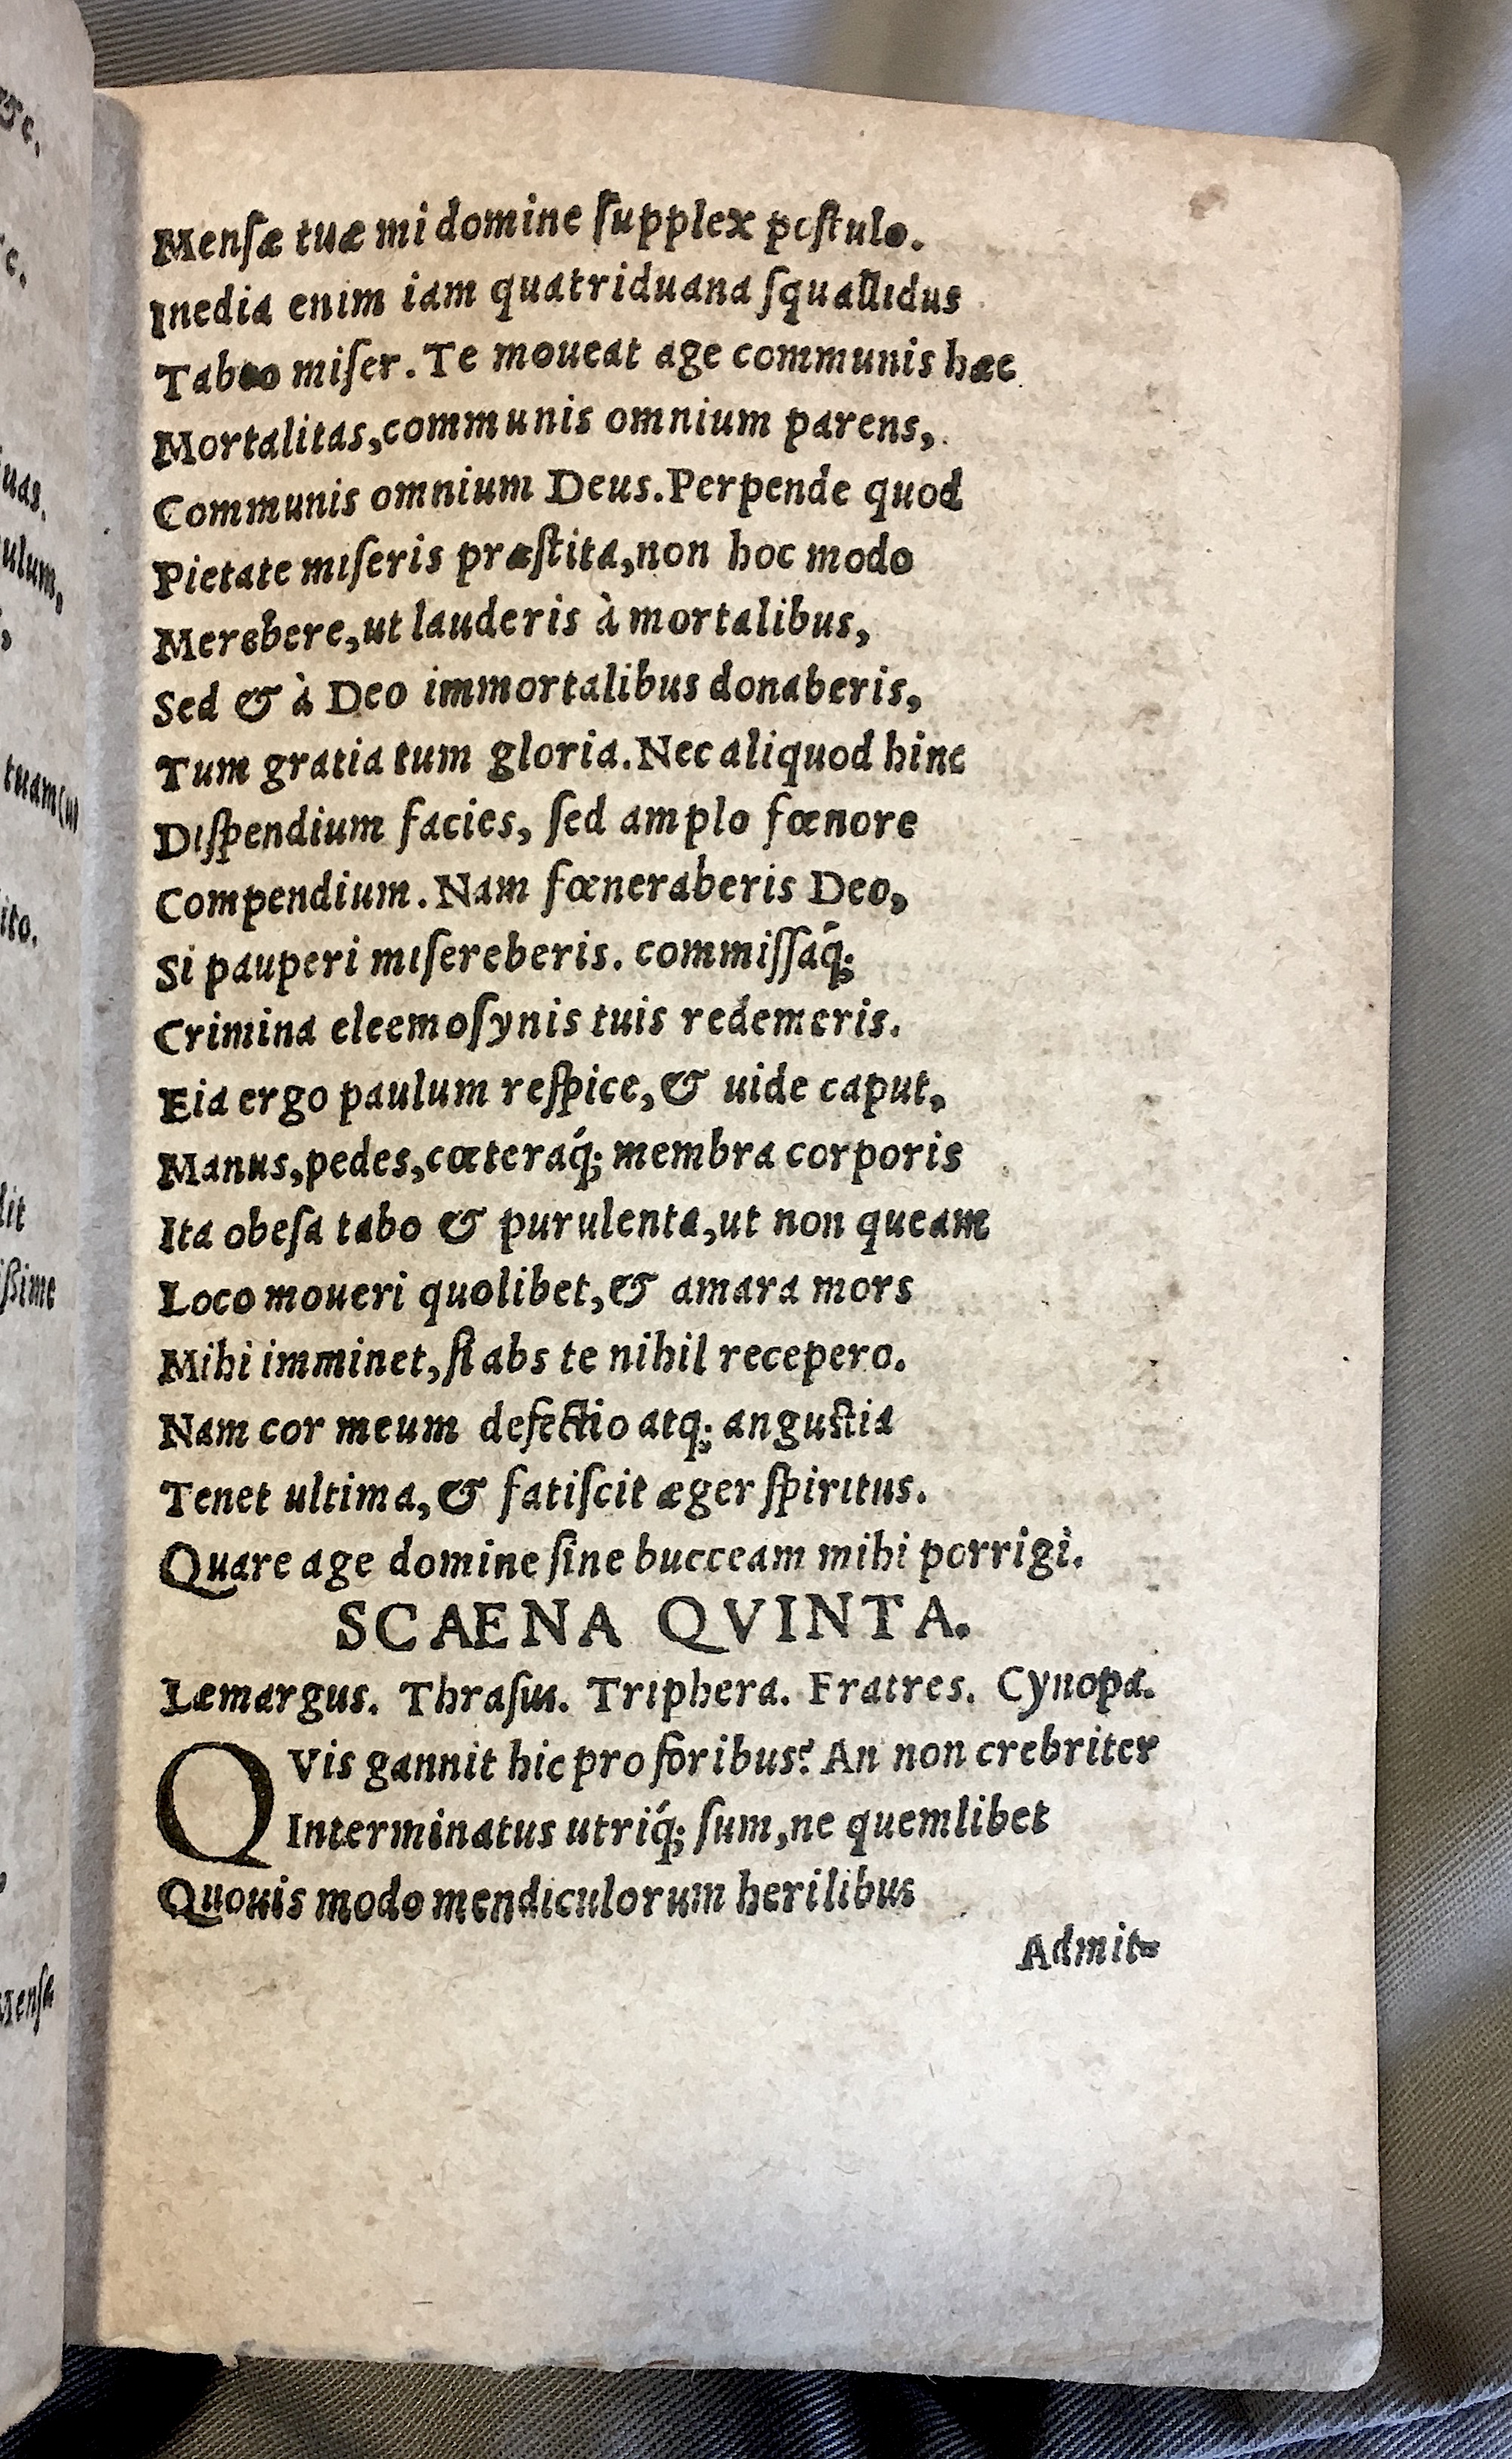 Mensæ tuæ mi domine ſupplex poſtulo.
Inedia enim iam quatriduana ſquallidus
Tabeo miſer. Te moueat age communis hæc
Mortalitas, communis omnium parens,
Communis omnium Deus. Perpende quod
Pietate miſeris præſtita, non hoc modo
Merebere, ut lauderis à mortalibus,
Sed & à Deo immortalibus donaberis,
Tum gratia tum gloria. Nec aliquod hinc
Diſpendium facies, ſed amplo fœnore
Compendium. Nam fœneraberis Deo,
Si pauperi miſereberis. commiſſaq́;
Crimina eleemoſynis tuis redemeris.
Eia ergo paulum reſpice, & uide caput,
Manus, pedes, cœteraq́; membra corporis
Ita obeſa tabo & purulenta, ut non queam
Loco moueri quolibet, & amara mors
Mihi imminet, ſi abs te nihil recepero.
Nam cor meum defectio atq; anguſtia
Tenet ultima, & fatiſcit æger ſpiritus.
Quare age domine ſine bucceam mihi porrigi.
SCAENA QVINTA.
Læmargus. Thraſus. Triphera. Fratres. Cynopa.
QVis gannit hic pro foribus? An non crebriter
Interminatus utriq́; ſum, ne quemlibet
Quouis modo mendiculorum herilibus
Admit=